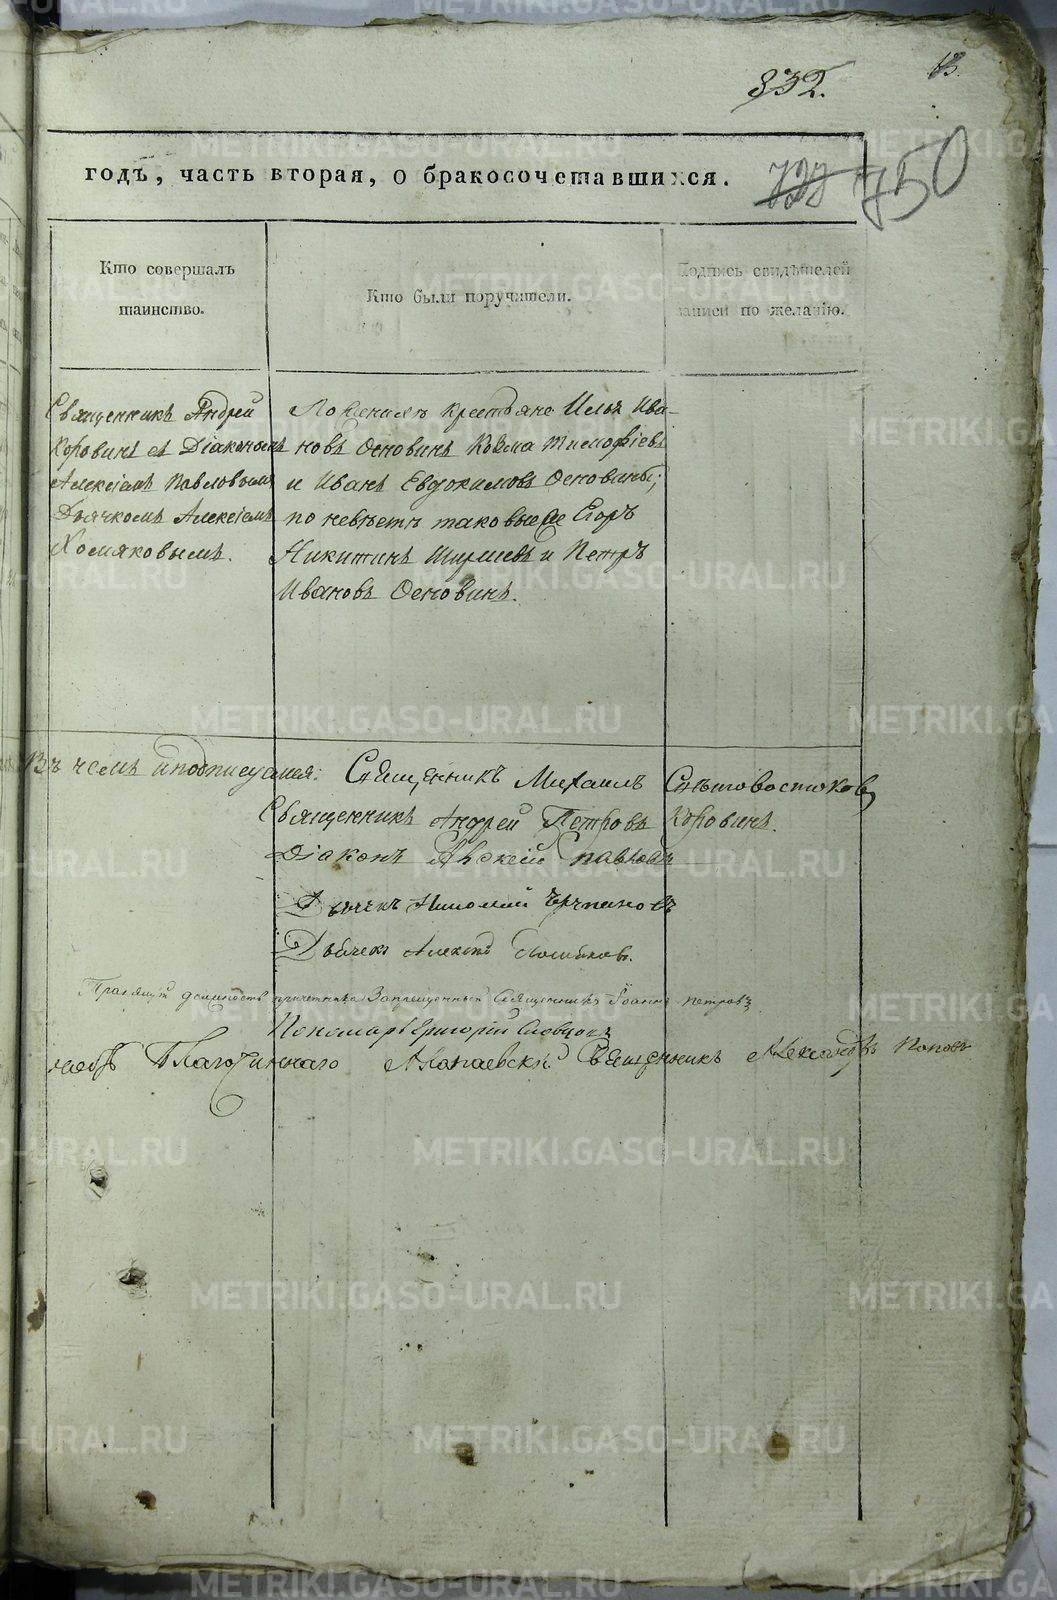 832.
13.
годъ, часть вторая, о бракосочетавшихся.
729 750
Кто совершалъ
таинство.
Кто были поручители.
Подпись свидѣтелей
записи по желанію.
Священникъ Андрей
Коровинъ съ Діакономъ
Алексіемъ Павловымъ
Дьячкомъ Алексіемъ
Хомяковымъ.
По женихѣ крестьяне Илья Ива-
новъ Осковинъ Козма Тимофіевъ
и Иванъ Евдокимовъ Осковины;
по невѣстѣ таковые же Егоръ
Никитинъ и Петръ
Ивановъ Осковинъ.
Въ чемъ и подписуемся: Священникъ Михаилъ Свѣтовостоковъ
Священникъ Андрей Петровъ Коровинъ.
Діаконъ Алексій Павловъ
Дьячекъ Черпановъ
Дьячекъ
должность причетника Запрещенный Священникъ Іоаннъ Петровъ
Пономарь Григорій Словцовъ
Благочиннаго Алапаевскій Священникъ Александръ Поповъ
METRIKI.GASO-URAL.RU